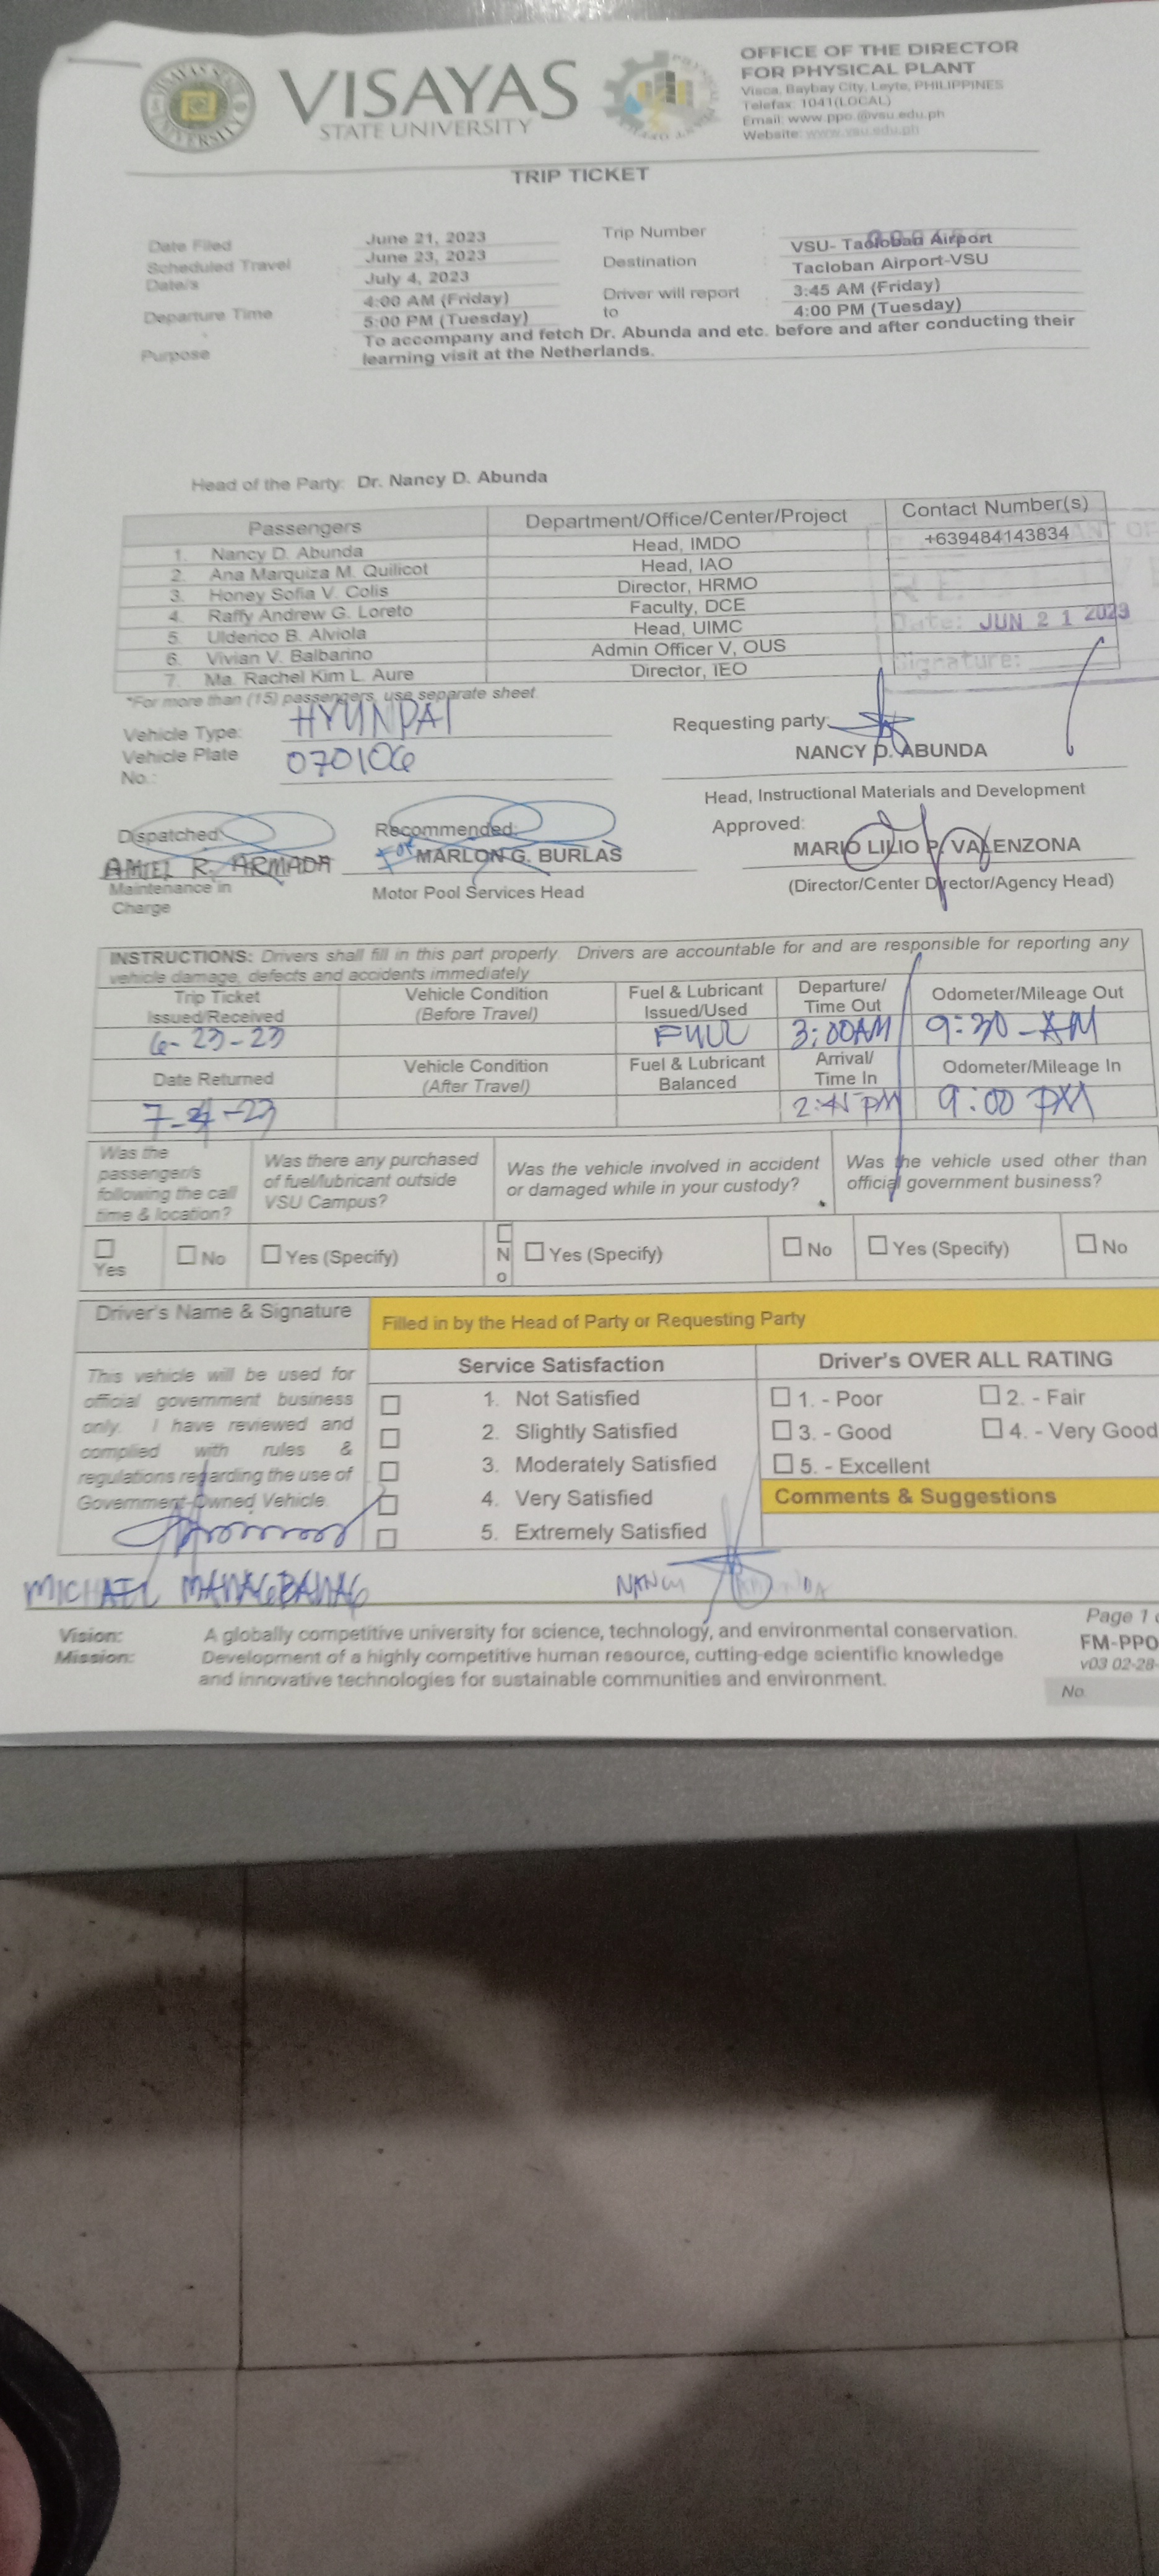 VISAYAS STATE UNIVERSITY
VISAYAS
STATE UNIVERSITY
OFFICE OF THE DIRECTOR
FOR PHYSICAL PLANT
Visca, Baybay City, Leyte, PHILIPPINES
Telefax: 1041(LOCAL)
Email: www.ppo.@vsu.edu.ph
Website: www.vsu.edu.ph
TRIP TICKET
Date Filed June 21, 2023 Trip Number :
Scheduled Travel Date/s : June 23, 2023 July 4, 2023 Destination : VSU- Tacloban Airport Tacloban Airport-VSU
Departure Time : 4:00 AM (Friday) 5:00 PM (Tuesday) Driver will report to : 3:45 AM (Friday) 4:00 PM (Tuesday)
Purpose : To accompany and fetch Dr. Abunda and etc. before and after conducting their
learning visit at the Netherlands.
Head of the Party: Dr. Nancy D. Abunda
Passengers Department/Office/Center/Project Contact Number(s)
1. Nancy D. Abunda Head, IMDO +639484143834
2. Ana Marquiza M. Quilicot Head, IAO
3. Honey Sofia V. Colis Director, HRMO
4. Raffy Andrew G. Loreto Faculty, DCE
5. Ulderico B. Alviola Head, UIMC
6. Vivian V. Balbarino Admin Officer V, OUS
7. Ma. Rachel Kim L. Aure Director, IEO
Date: JUN 21 2023
Signature:
*For more than (15) passengers, use separate sheet.
Vehicle Type: HYUNDAI
Vehicle Plate No.: 070106
Requesting party:
NANCY D. ABUNDA
Head, Instructional Materials and Development
Dispatched: Recommended: Approved:
AMIEL R. ARMADA For MARLON G. BURLAS MARIO LILIO P. VALENZONA
Maintenance in Charge Motor Pool Services Head (Director/Center Director/Agency Head)
INSTRUCTIONS: Drivers shall fill in this part properly. Drivers are accountable for and are responsible for reporting any
vehicle damage, defects and accidents immediately
Trip Ticket Issued/Received Vehicle Condition (Before Travel) Fuel & Lubricant Issued/Used Departure/ Time Out Odometer/Mileage Out
6-23-23 FULL 3:00AM 9:30-AM
Date Returned Vehicle Condition (After Travel) Fuel & Lubricant Balanced Arrival/ Time In Odometer/Mileage In
7-4-23 2:45 PM 9:00 PM
Was the passenger/s following the call time & location? Was there any purchased of fuel/lubricant outside VSU Campus? Was the vehicle involved in accident or damaged while in your custody? Was the vehicle used other than official government business?
Yes No Yes (Specify) No Yes (Specify) No Yes (Specify) No
Driver's Name & Signature Filled in by the Head of Party or Requesting Party
This vehicle will be used for
official government business
only. I have reviewed and
complied with rules &
regulations regarding the use of
Government-Owned Vehicle
Service Satisfaction
1. Not Satisfied
2. Slightly Satisfied
3. Moderately Satisfied
4. Very Satisfied
5. Extremely Satisfied
Driver's OVER ALL RATING
1. - Poor 2. - Fair
3. - Good 4. - Very Good
5. - Excellent
Comments & Suggestions
MICHAEL MANAGBANAG NANCY
Vision: A globally competitive university for science, technology, and environmental conservation.
Mission: Development of a highly competitive human resource, cutting-edge scientific knowledge
and innovative technologies for sustainable communities and environment.
Page 1
FM-PPO
v03 02-28-
No.